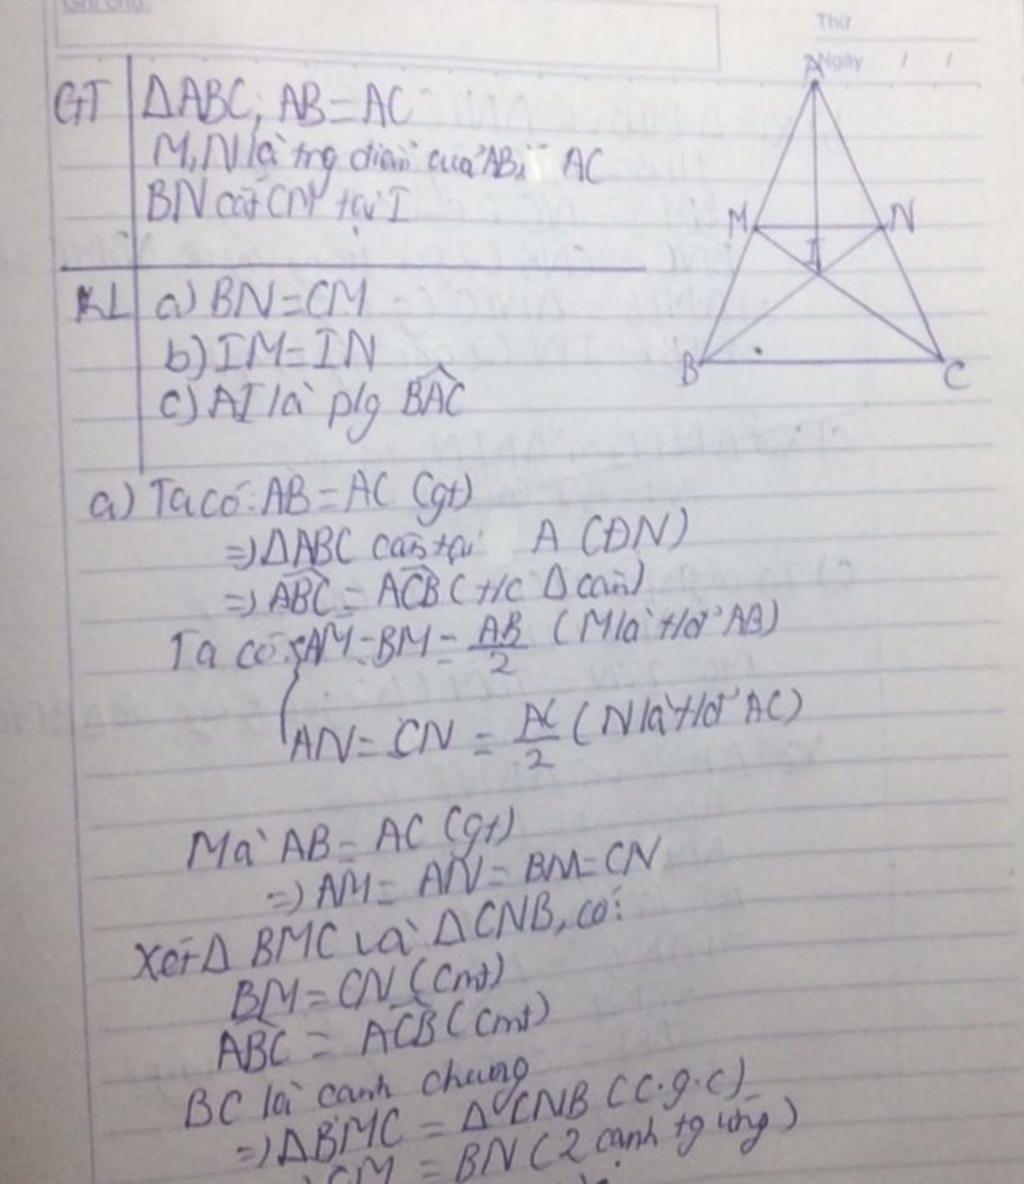 Ghi chú:
Thứ
Ngày / /
GT ΔABC, AB = AC
M, N là trg điểm của AB, AC
BN cắt CM tại I
KL a) BN = CM
b) IM = IN
c) AI là p/g BAC
A
M N
I
B C
a) Ta có: AB = AC (gt)
=> ΔABC cân tại A (ĐN)
=> ABC = ACB (t/c Δ cân)
Ta có: { AM = BM = AB/2 (M là t/đ AB)
AN = CN = AC/2 (N là t/đ AC)
Mà AB = AC (gt)
=> AM = AN = BM = CN
Xét Δ BMC và ΔCNB, có:
BM = CN (cmt)
ABC = ACB (cmt)
BC là cạnh chung
=> ΔBMC = ΔCNB (c.g.c)
CM = BN (2 cạnh tg ứng)